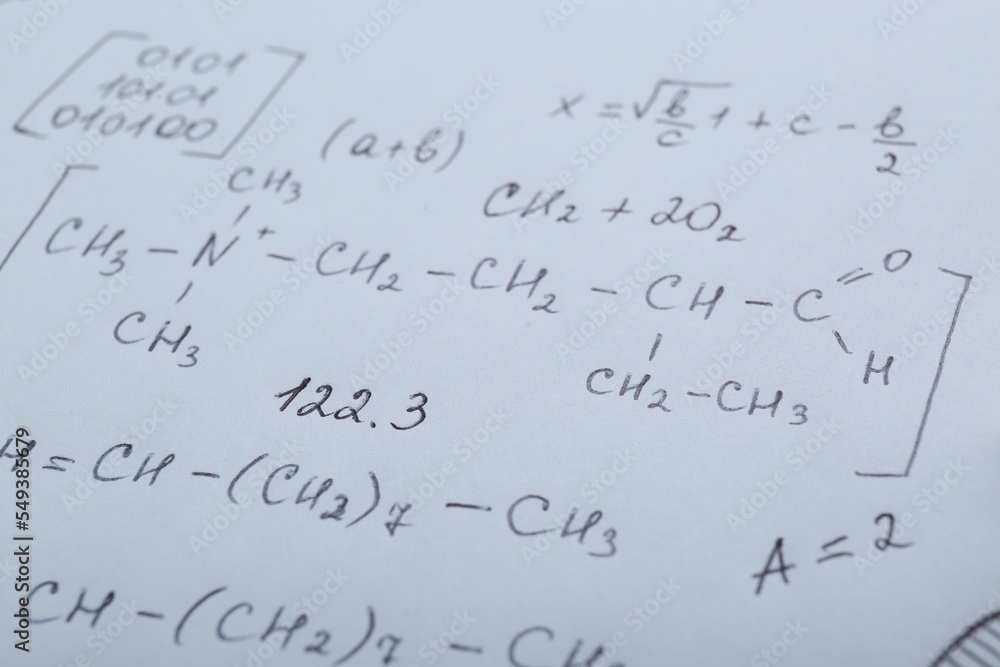 0101
10101
010100
(a+b)
x = √b/c 1 + c - b/2
CH₂ + 2O₂
CH₃
CH₃ - N⁺ - CH₂ - CH₂ - CH - C = O
CH₃
H
CH₂ - CH₃
122.3
H = CH - (CH₂)₇ - CH₃
A = 2
CH - (CH₂)₇ - CH₃
Adobe Stock | #549385679
Adobe Stock